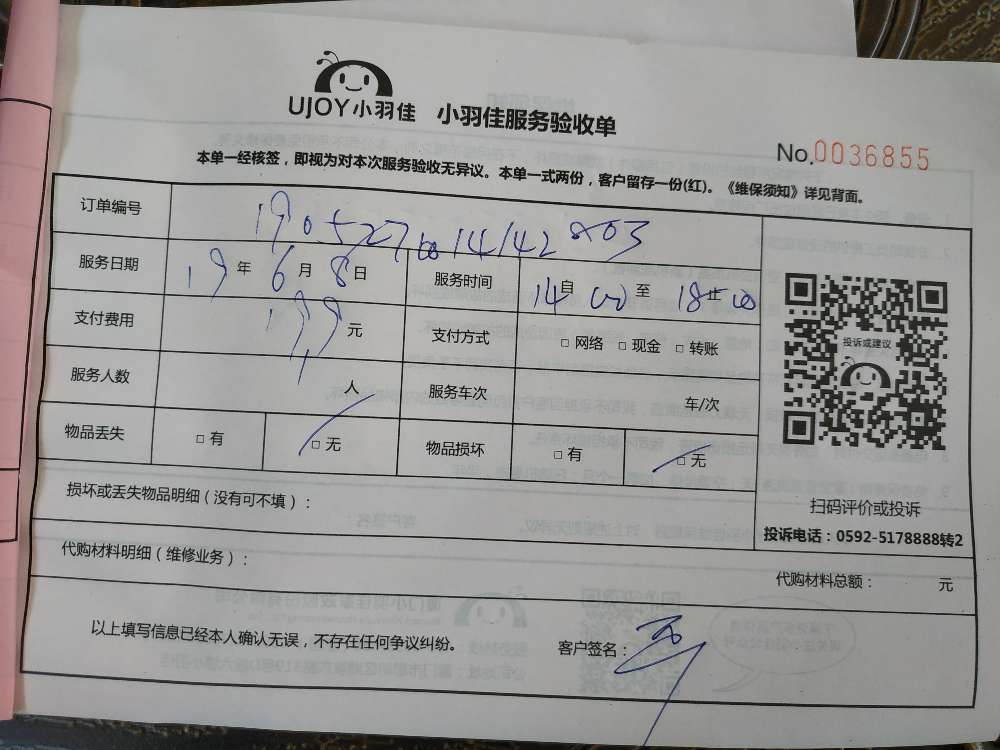 UJOY小羽佳 小羽佳服务验收单
No.0036855
本单一经核签，即视为对本次服务验收无异议。本单一式两份，客户留存一份(红)。《维保须知》详见背面。
订单编号
服务日期 19 年 6 月 8 日 服务时间 14 自 00 至 18 止 00
支付费用 199 元 支付方式 □ 网络 □ 现金 □ 转账
服务人数 人 服务车次 车/次
物品丢失 □ 有 □ 无 物品损坏 □ 有 □ 无
投诉或建议
扫码评价或投诉
投诉电话：0592-5178888转2
损坏或丢失物品明细（没有可不填）：
代购材料明细（维修业务）：
代购材料总额： 元
以上填写信息已经本人确认无误，不存在任何争议纠纷。 客户签名：